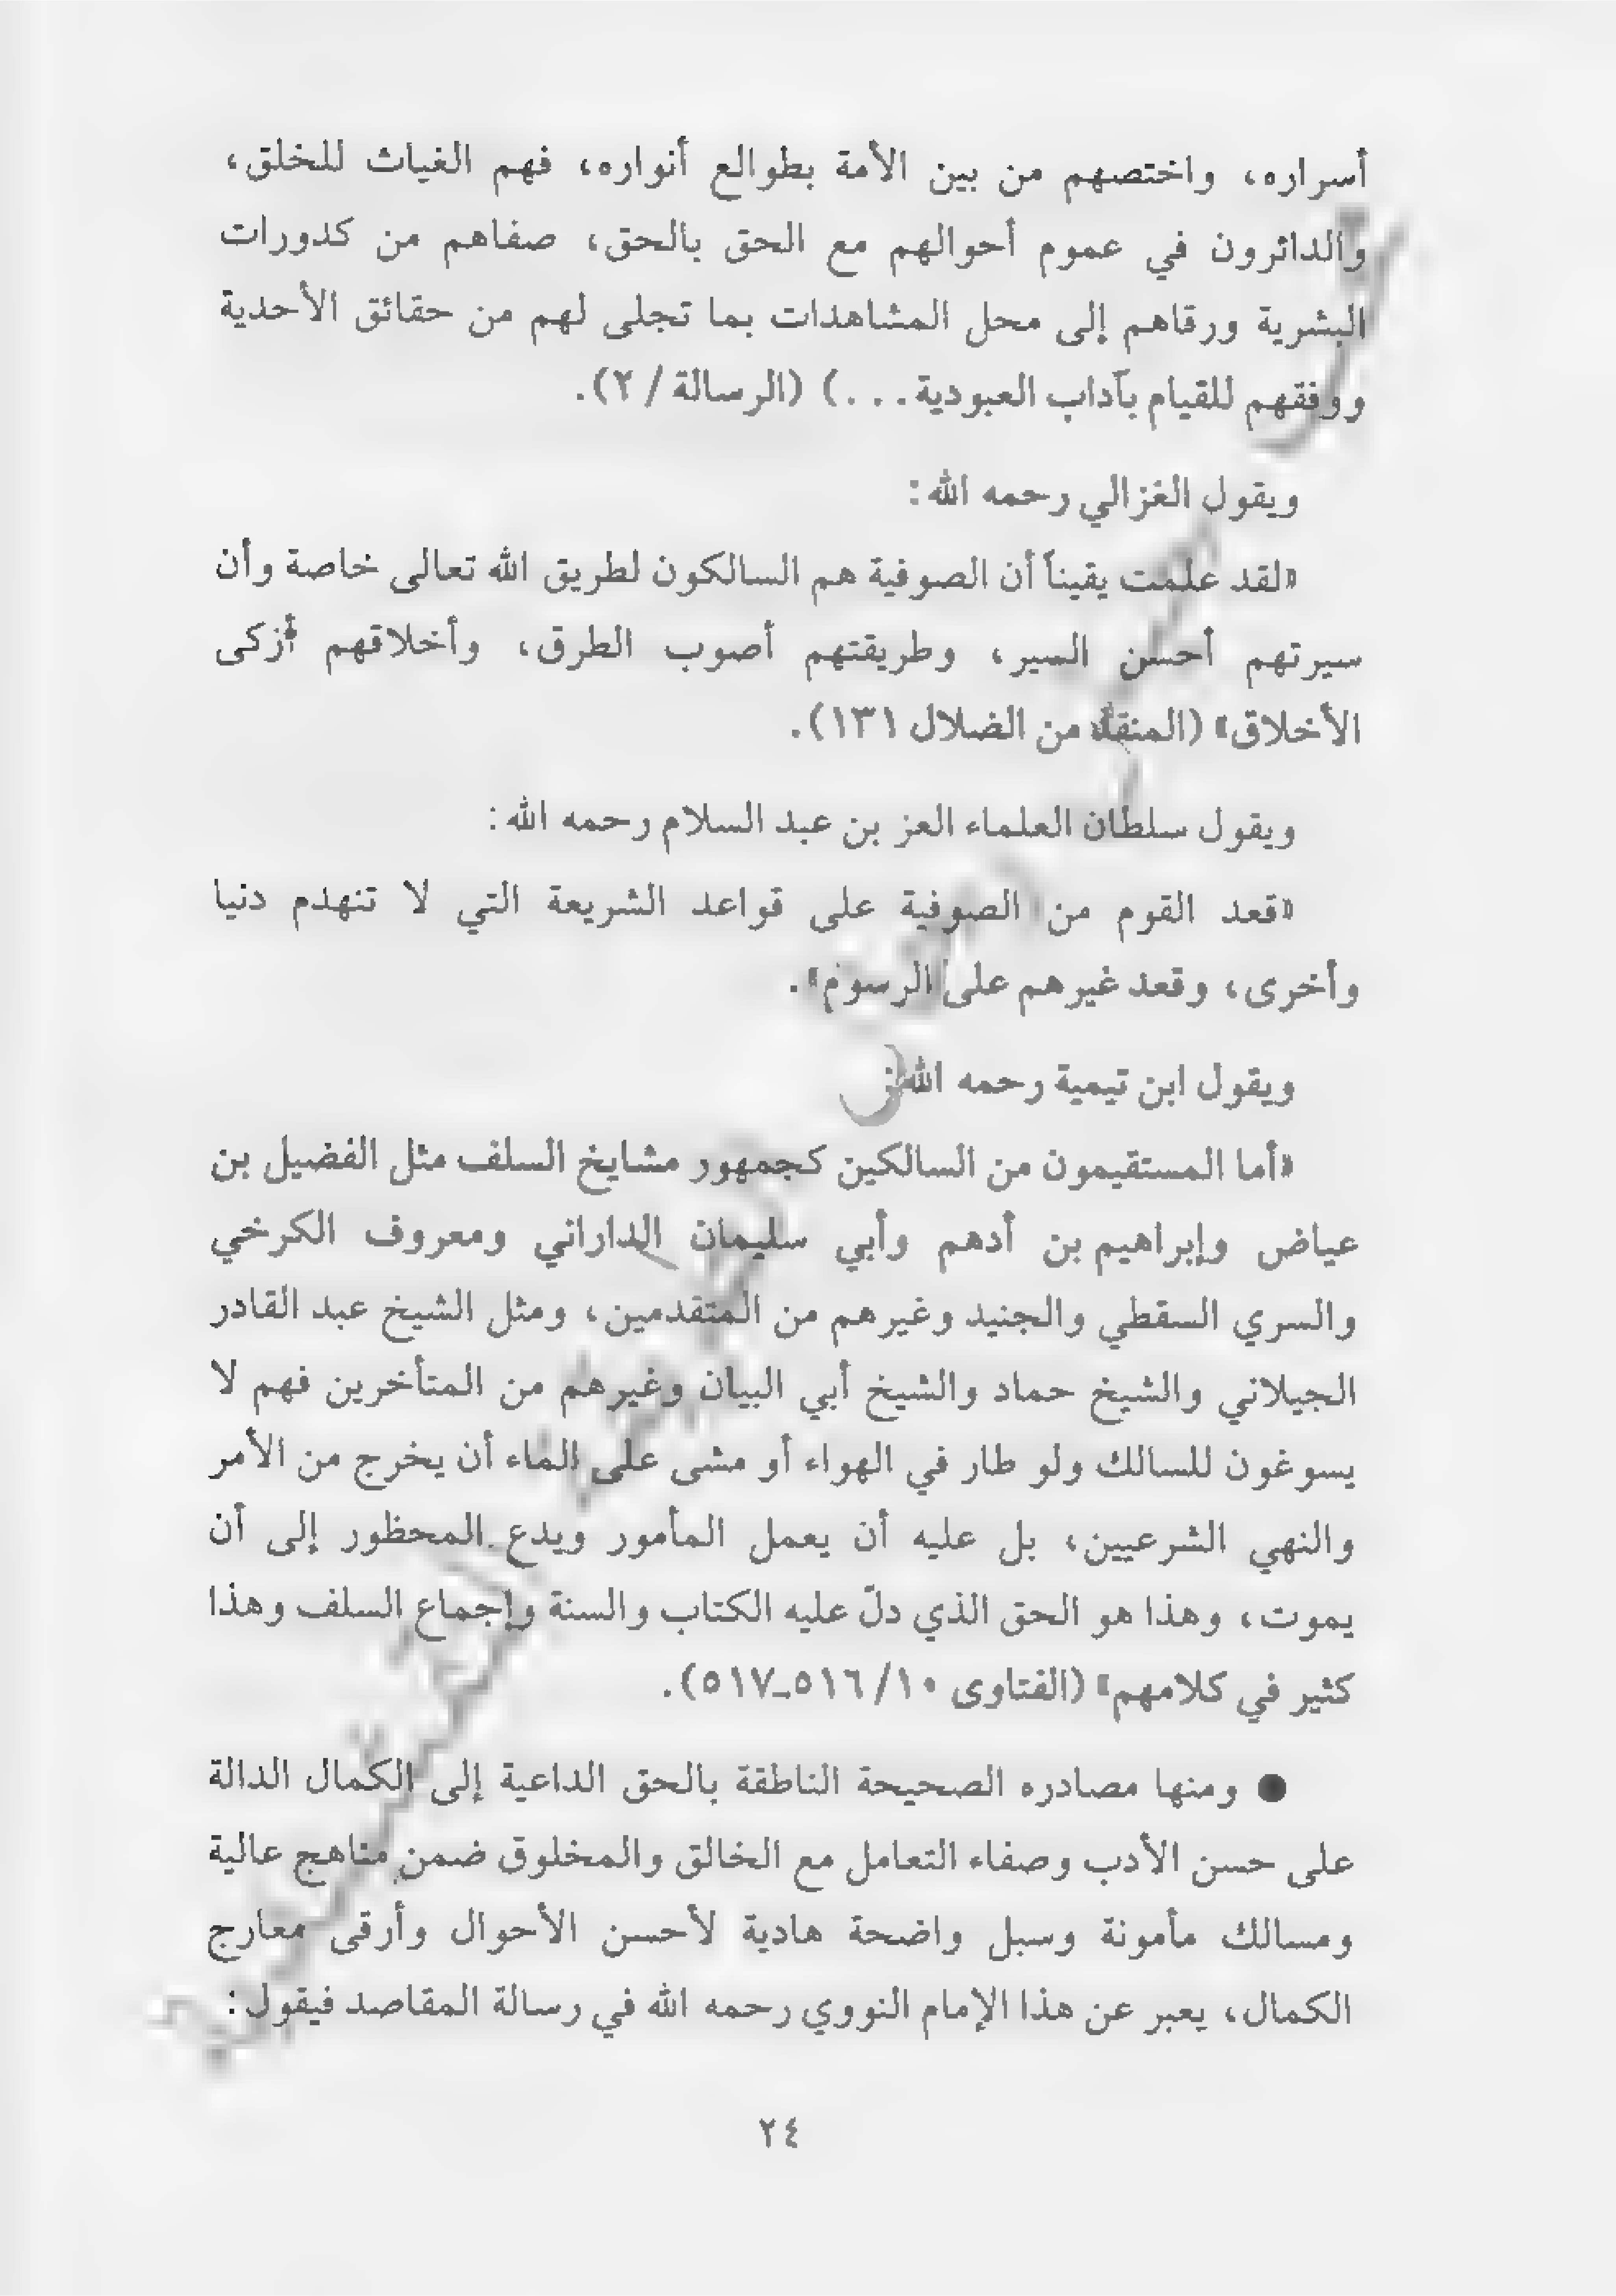 أسراره، واختصهم من بين الأمة بطوالع أنواره، فهم الغياث للخلق،
والدائرون في عموم أحوالهم مع الحق بالحق، صفاهم من كدورات
البشرية ورقاهم إلى محل المشاهدات بما تجلى لهم من حقائق الأحدية
ووفقهم للقيام بآداب العبودية...) (الرسالة / ٢).
ويقول الغزالي رحمه الله:
«لقد علمت يقيناً أن الصوفية هم السالكون لطريق الله تعالى خاصة وأن
سيرتهم أحسن السير، وطريقتهم أصوب الطرق، وأخلاقهم أزكى
الأخلاق» (المنقذ من الضلال ١٣١).
ويقول سلطان العلماء العز بن عبد السلام رحمه الله:
«قعد القوم من الصوفية على قواعد الشريعة التي لا تنهدم دنيا
وأخرى، وقعد غيرهم على الرسوم».
ويقول ابن تيمية رحمه الله:
«أما المستقيمون من السالكين كجمهور مشايخ السلف مثل الفضيل بن
عياض وإبراهيم بن أدهم وأبي سليمان الداراني ومعروف الكرخي
والسري السقطي والجنيد وغيرهم من المتقدمين، ومثل الشيخ عبد القادر
الجيلاني والشيخ حماد والشيخ أبي البيان وغيرهم من المتأخرين فهم لا
يسوغون للسالك ولو طار في الهواء أو مشى على الماء أن يخرج من الأمر
والنهي الشرعيين، بل عليه أن يعمل المأمور ويدع المحظور إلى أن
يموت، وهذا هو الحق الذي دلّ عليه الكتاب والسنة وإجماع السلف وهذا
كثير في كلامهم» (الفتاوى ١٠/ ٥١٦ـ٥١٧).
● ومنها مصادره الصحيحة الناطقة بالحق الداعية إلى الكمال الدالة
على حسن الأدب وصفاء التعامل مع الخالق والمخلوق ضمن مناهج عالية
ومسالك مأمونة وسبل واضحة هادية لأحسن الأحوال وأرقى معارج
الكمال، يعبر عن هذا الإمام النووي رحمه الله في رسالة المقاصد فيقول:
٢٤